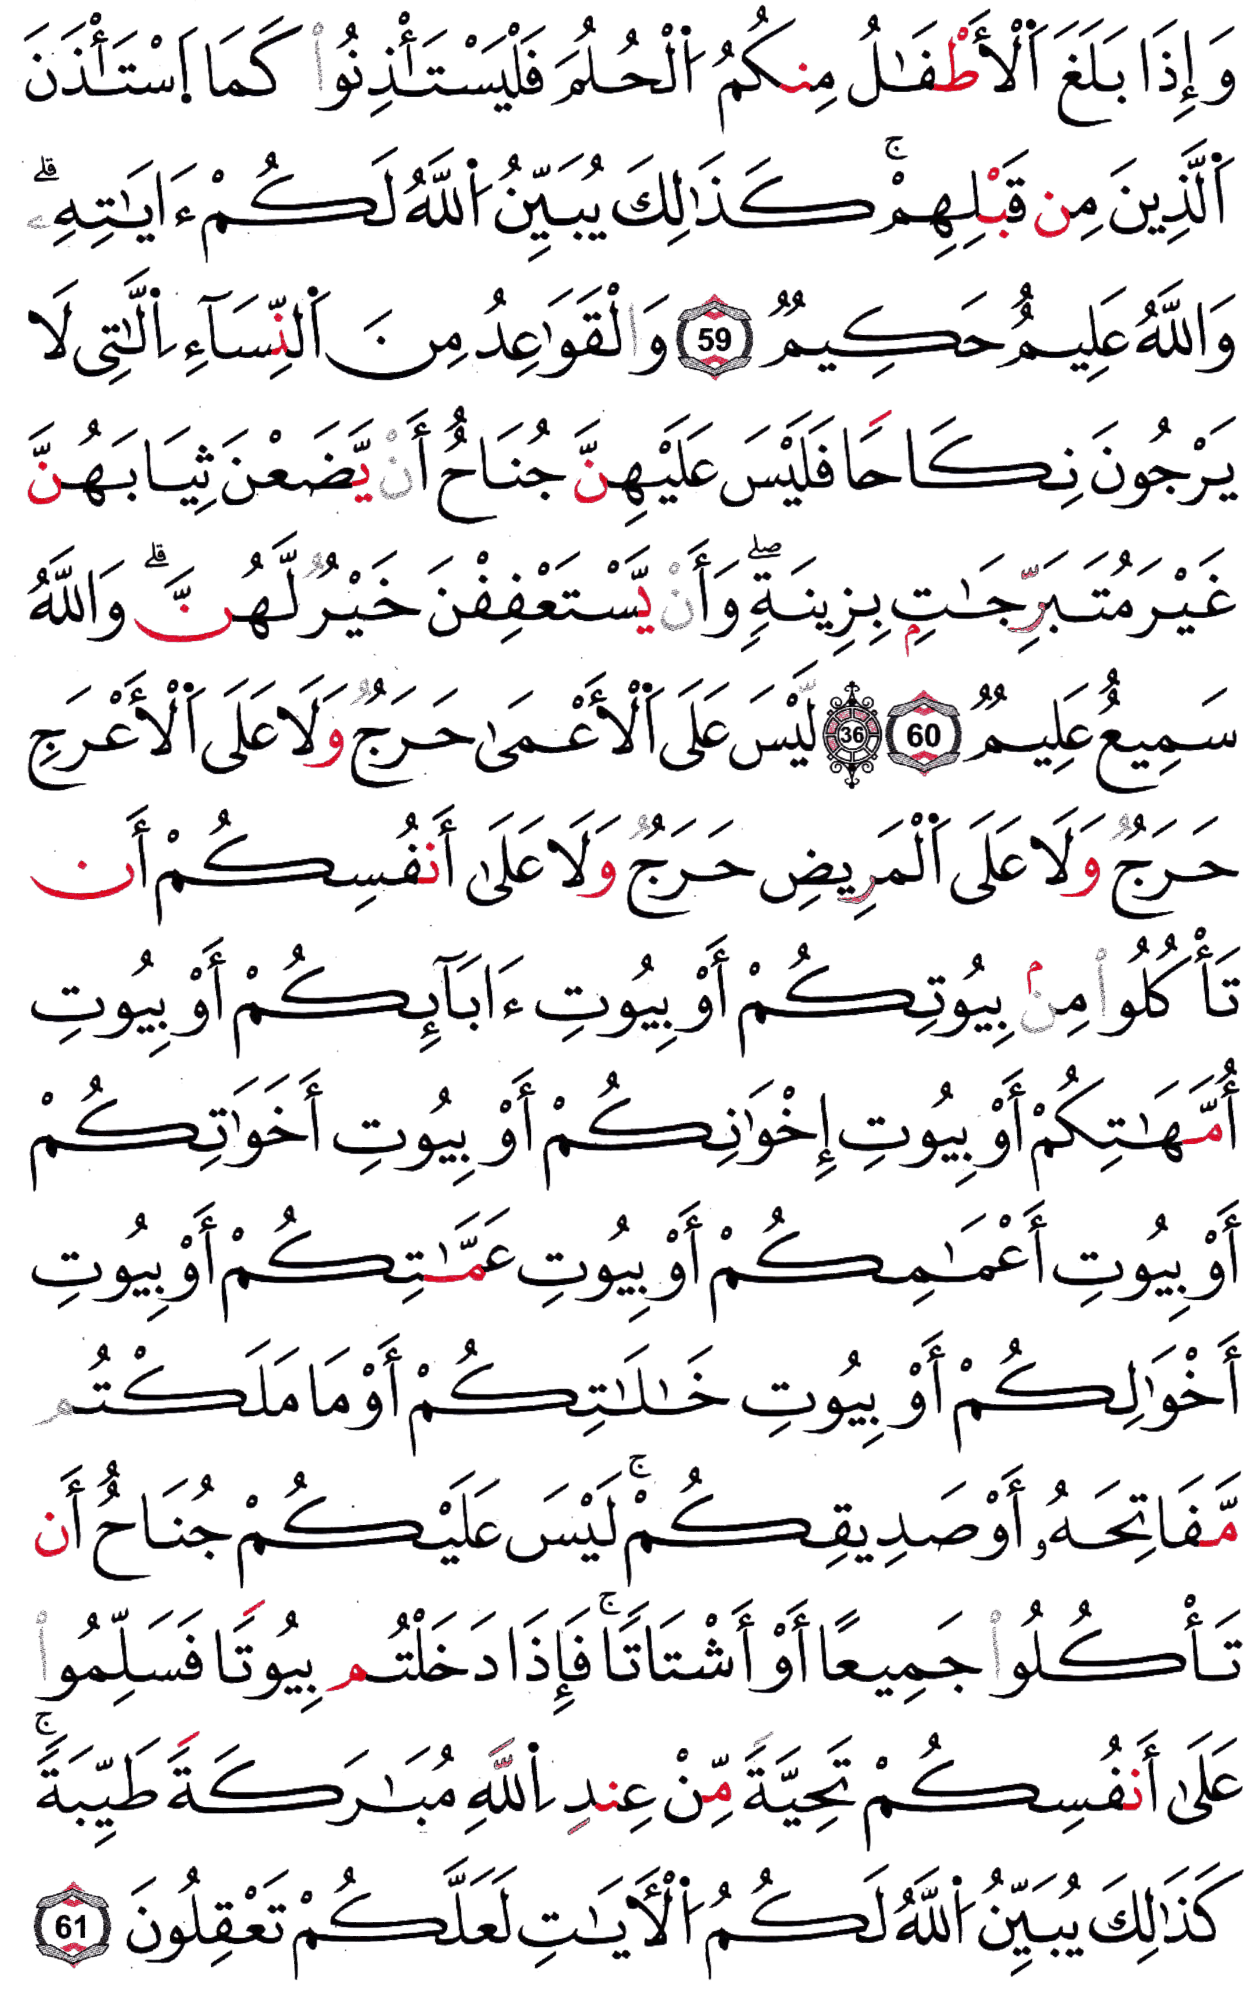 وَإِذَا بَلَغَ اَ۬لْأَطْفَٰلُ مِنكُمُ اُ۬لْحُلُمَ فَلْيَسْتَأْذِنُواْ كَمَا اَ۪سْتَأْذَنَ
اَ۬لَّذِينَ مِن قَبْلِهِمْۚ كَذَٰلِكَ يُبَيِّنُ اُ۬للَّهُ لَكُمْ ءَايَٰتِهِۦۗ
وَاللَّهُ عَلِيمٌ حَكِيمٌ 59 وَالْقَوَٰعِدُ مِنَ اَ۬لنِّسَآءِ اِ۬لَّٰتِي لَا
يَرْجُونَ نِكَاحًا فَلَيْسَ عَلَيْهِنَّ جُنَاحٌ أَنْ يَّضَعْنَ ثِيَابَهُنَّ
غَيْرَ مُتَبَرِّجَٰتِۢ بِزِينَةٍۖ وَأَنْ يَّسْتَعْفِفْنَ خَيْرٌ لَّهُنَّۗ وَاللَّهُ
سَمِيعٌ عَلِيمٌ 60 36 لَّيْسَ عَلَى اَ۬لْأَعْمَىٰ حَرَجٌ وَلَا عَلَى اَ۬لْأَعْرَجِ
حَرَجٌ وَلَا عَلَى اَ۬لْمَرِيضِ حَرَجٌ وَلَا عَلَىٰ أَنفُسِكُمْ أَن
تَأْكُلُواْ مِنۢ بِيُوتِكُمْ أَوْ بِيُوتِ ءَابَآئِكُمْ أَوْ بِيُوتِ
أُمَّهَٰتِكُمْ أَوْ بِيُوتِ إِخْوَٰنِكُمْ أَوْ بِيُوتِ أَخَوَٰتِكُمْ
أَوْ بِيُوتِ أَعْمَٰمِكُمْ أَوْ بِيُوتِ عَمَّٰتِكُمْ أَوْ بِيُوتِ
أَخْوَٰلِكُمْ أَوْ بِيُوتِ خَٰلَٰتِكُمْ أَوْ مَا مَلَكْتُم
مَّفَاتِحَهُۥ أَوْ صَدِيقِكُمْۚ لَيْسَ عَلَيْكُمْ جُنَاحٌ أَن
تَأْكُلُواْ جَمِيعًا أَوْ أَشْتَاتًاۚ فَإِذَا دَخَلْتُم بِيُوتًا فَسَلِّمُواْ
عَلَىٰ أَنفُسِكُمْ تَحِيَّةً مِّنْ عِندِ اِ۬للَّهِ مُبَٰرَكَةً طَيِّبَةًۚ
كَذَٰلِكَ يُبَيِّنُ اُ۬للَّهُ لَكُمُ اُ۬لْأٓيَٰتِ لَعَلَّكُمْ تَعْقِلُونَ 61